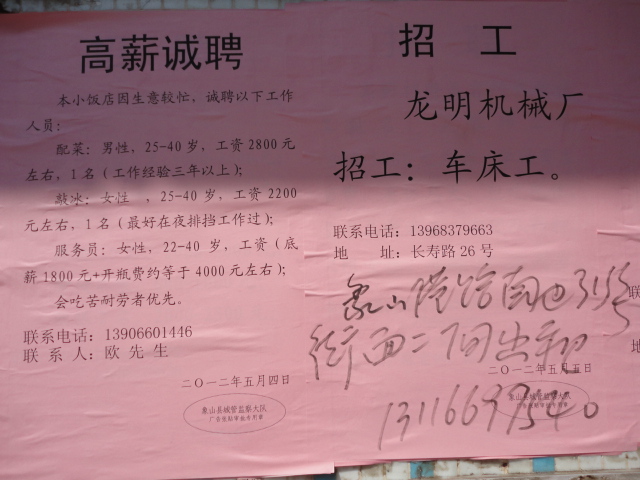 高薪诚聘
本小饭店因生意较忙，诚聘以下工作
人员：
配菜：男性，25-40 岁，工资 2800 元
左右，1 名（工作经验三年以上）；
敲冰：女性 ，25-40 岁，工资 2200
元左右，1 名（最好在夜排挡工作过）；
服务员：女性，22-40 岁，工资（底
薪 1800 元+开瓶费约等于 4000 元左右）；
会吃苦耐劳者优先。
联系电话：13906601446
联 系 人：欧 先 生
二〇一二年五月四日
象山县城管监察大队
广告张贴审批专用章
招 工
龙明机械厂
招工：车床工。
联系电话：13968379663
地 址：长寿路 26 号
象山港路
街面二间出租
二〇一二年五月五日
象山县城管监察大队
广告张贴审批专用章
联
地